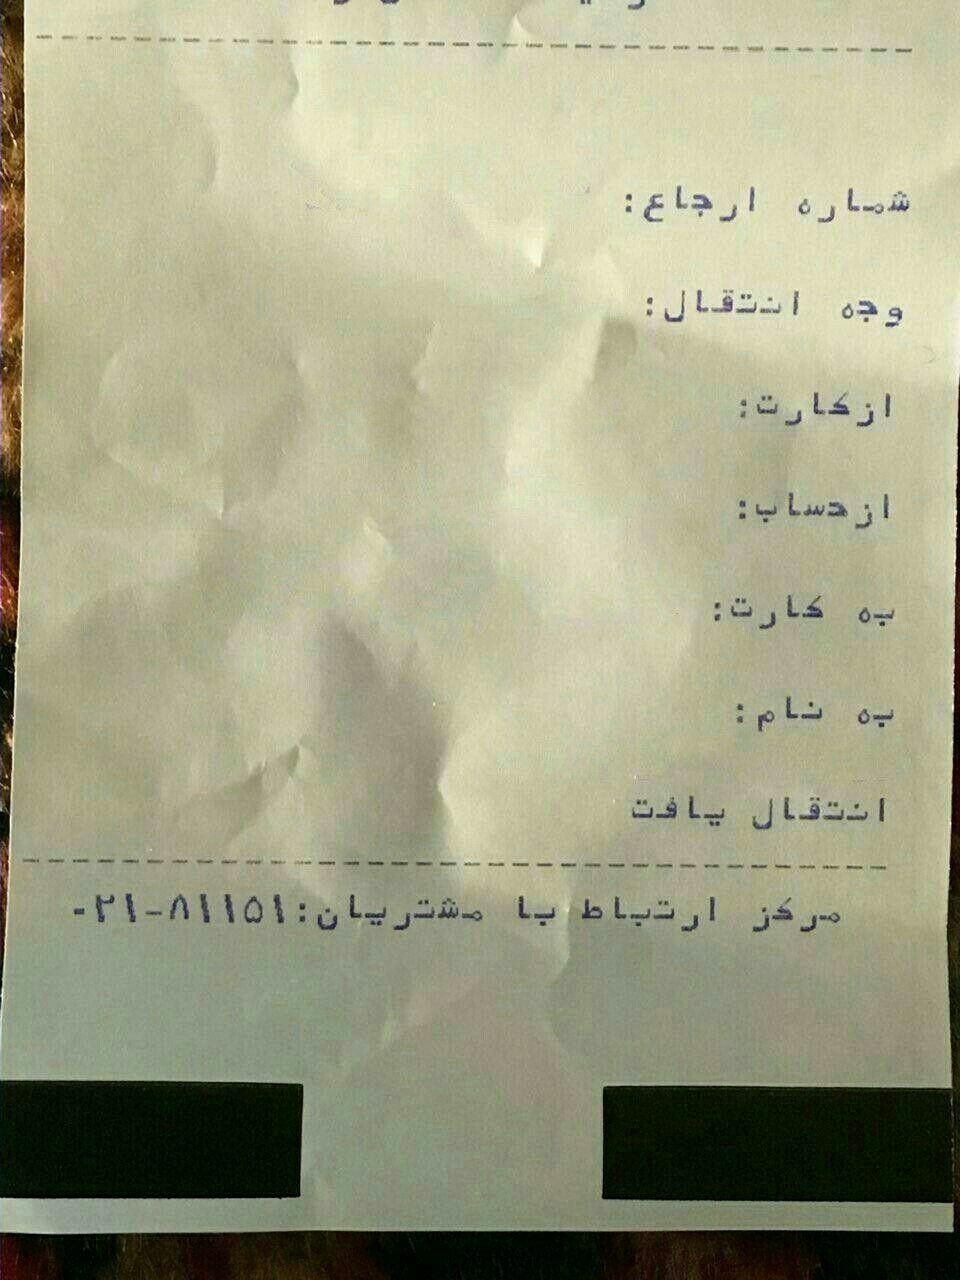 شماره ارجاع:
وجه انتقال:
ازکارت:
ازحساب:
به کارت:
به نام:
انتقال یافت
مرکز ارتباط با مشتریان:۸۱۱۵۱-۰۲۱